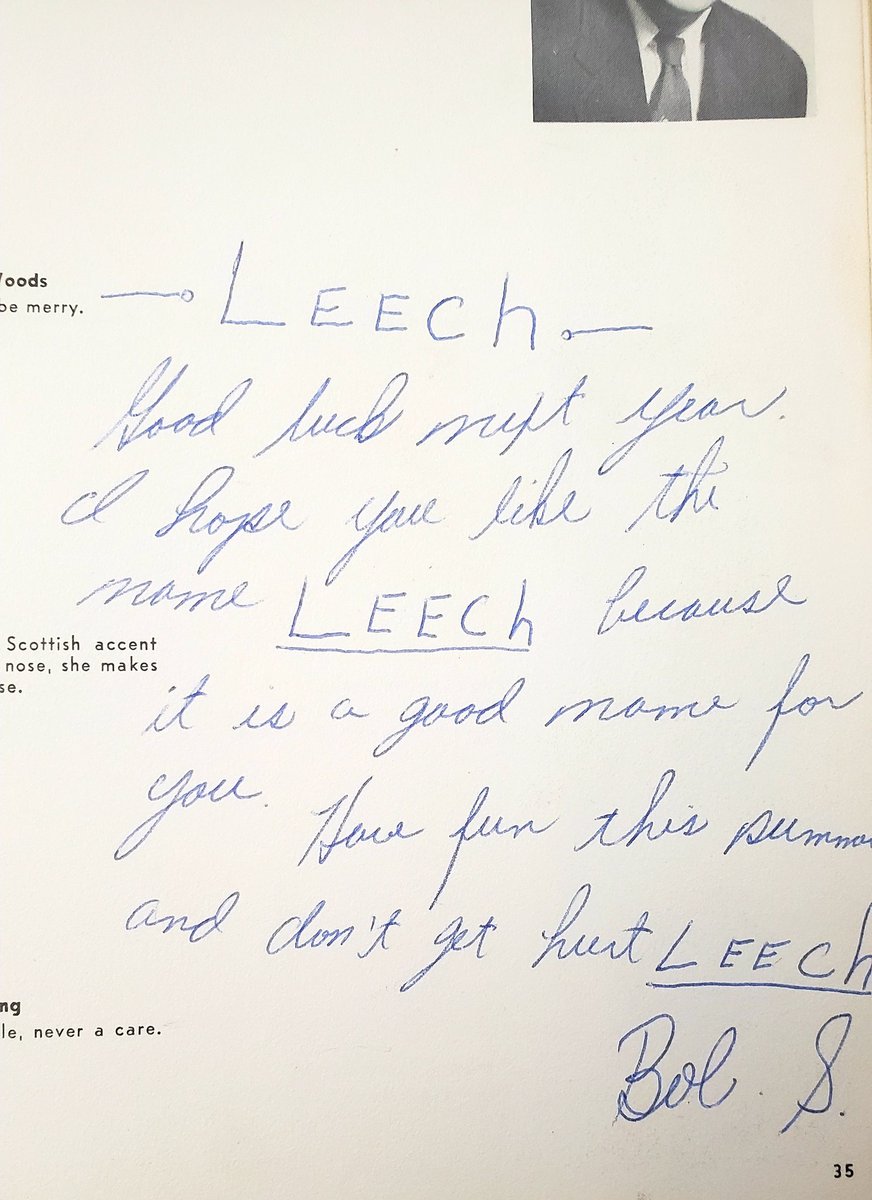 Woods
be merry.
LEECh
Good luck next year.
I hope you like the
name LEECh because
Scottish accent
nose, she makes
se.
it is a good name for
you. Have fun this summe
and don't get hurt LEECh
ng
le, never a care.
Bob S.
35